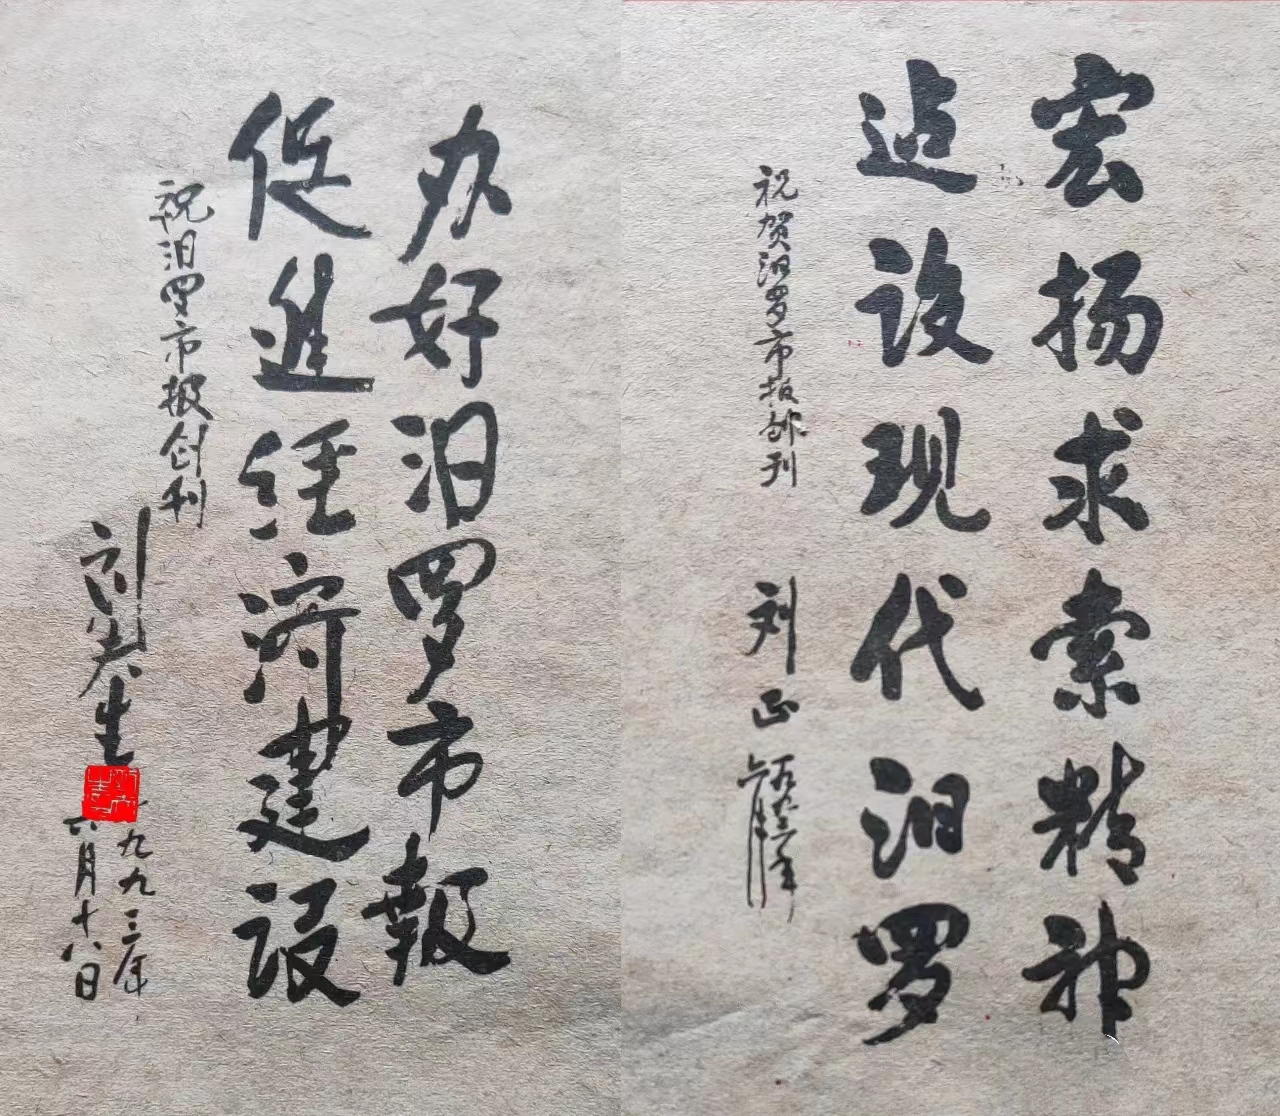 宏扬求索精神
迠设现代汨罗
祝贺汨罗市报创刊
刘正 一九九三年
六月
办好汨罗市報
促進经济建设
祝汨罗市报创刊
刘夫生
一九九三年
六月十八日